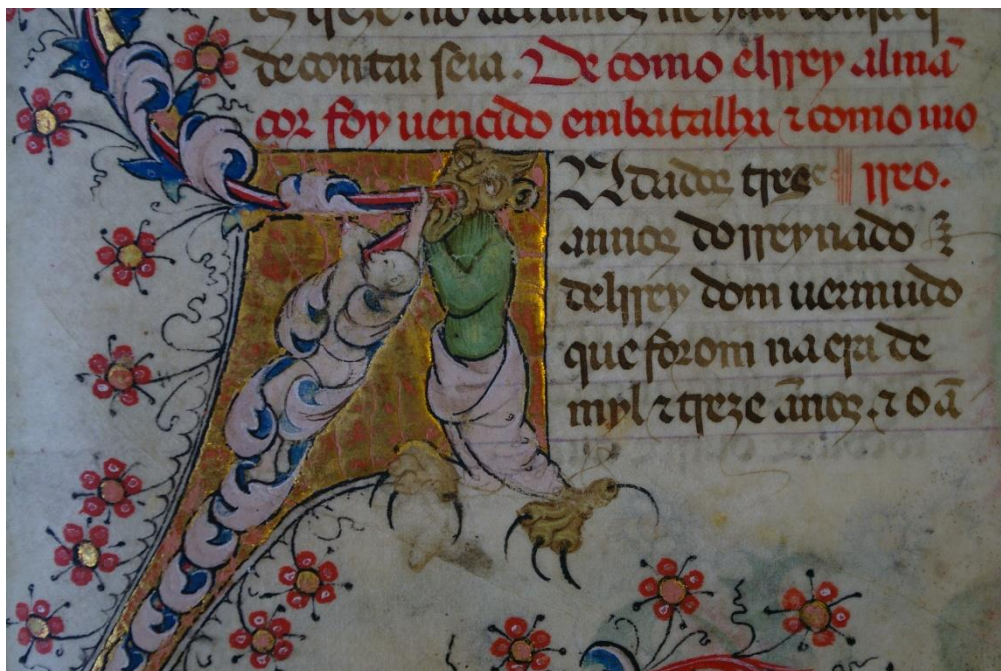 de contar seia. De como elrrey almã
cor foy uencido em batalha ⁊ como mo
Ndados tres rreo.
annos do rreynado
delrrey dom uermudo
que forom na era de
myl ⁊ treze ãnos. ⁊ o ã